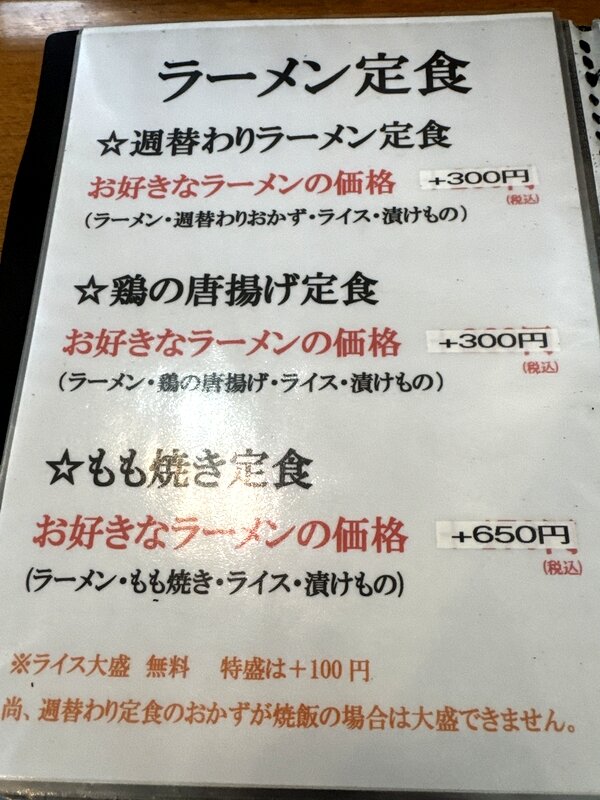 ラーメン定食
☆週替わりラーメン定食
お好きなラーメンの価格 +300円
(税込)
(ラーメン・週替わりおかず・ライス・漬けもの)
☆鶏の唐揚げ定食
お好きなラーメンの価格 +300円
(税込)
(ラーメン・鶏の唐揚げ・ライス・漬けもの)
☆もも焼き定食
お好きなラーメンの価格 +650円
(税込)
(ラーメン・もも焼き・ライス・漬けもの)
※ライス大盛 無料 特盛は+100円
尚、週替わり定食のおかずが焼飯の場合は大盛できません。